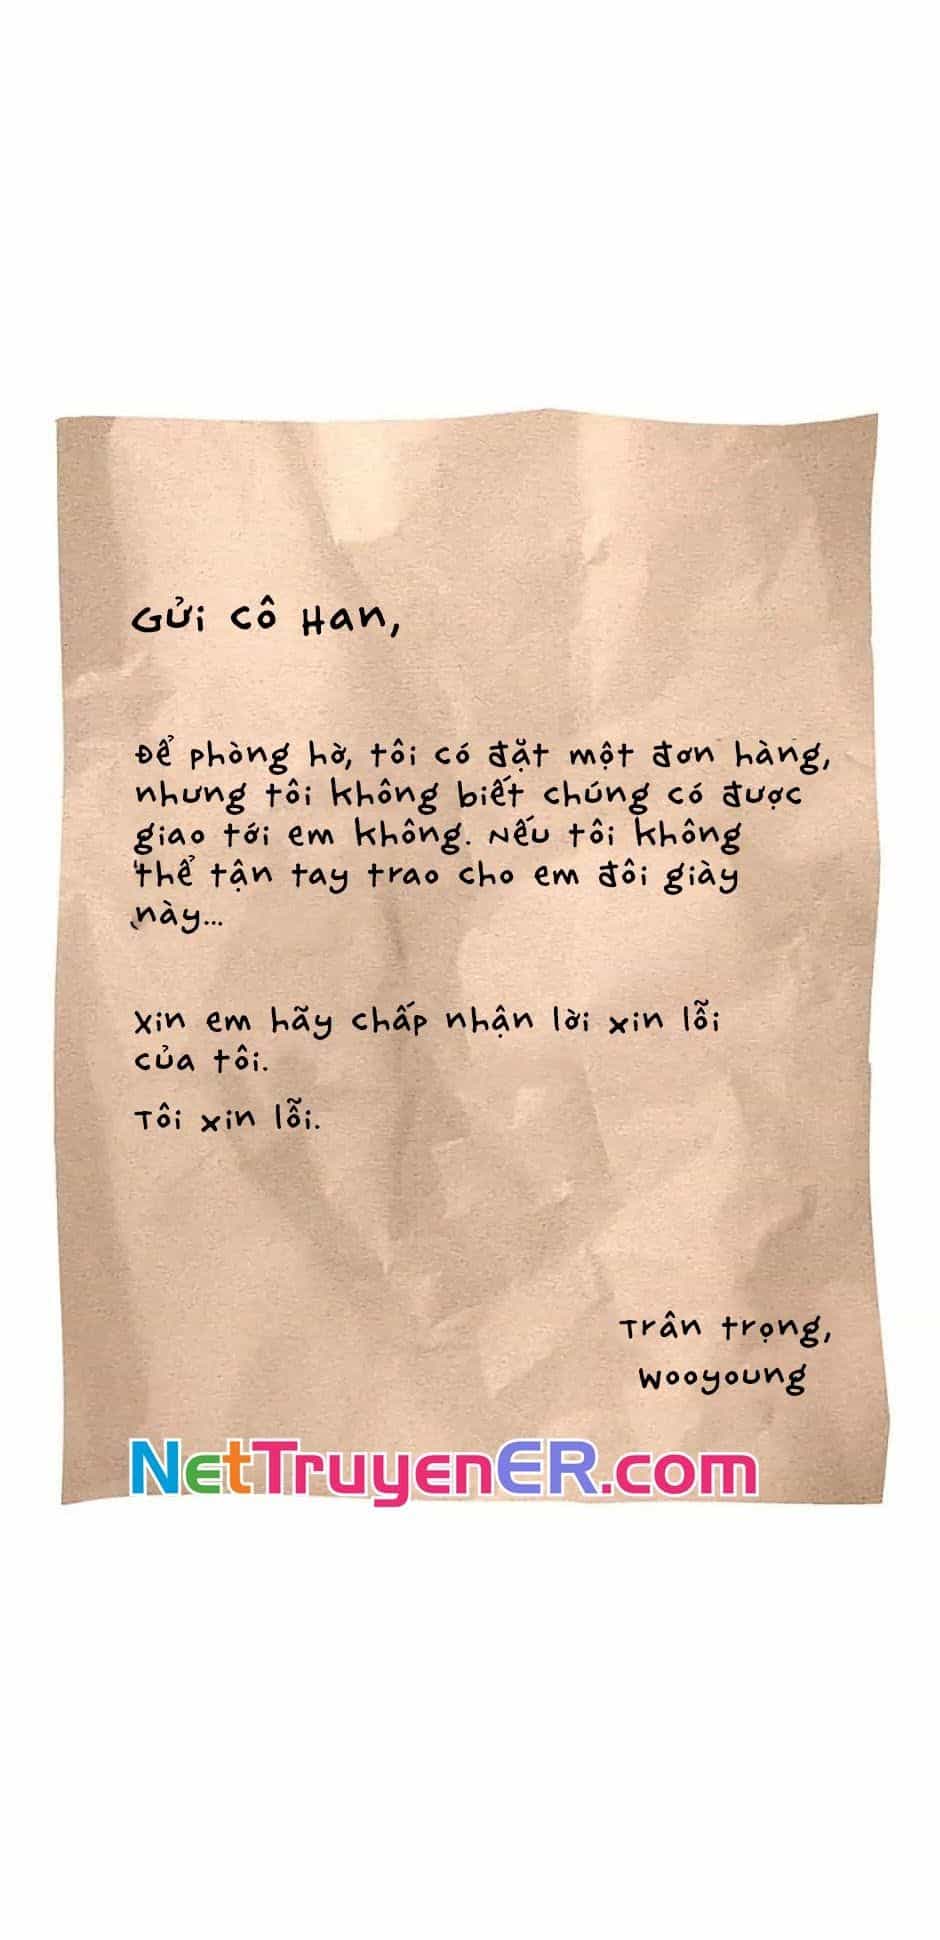 Gửi cô Han,
Để phòng hờ, tôi có đặt một đơn hàng,
nhưng tôi không biết chúng có được
giao tới em không. Nếu tôi không
thể tận tay trao cho em đôi giày
này...
Xin em hãy chấp nhận lời xin lỗi
của tôi.
Tôi xin lỗi.
Trân trọng,
Wooyoung
NetTruyenER.com